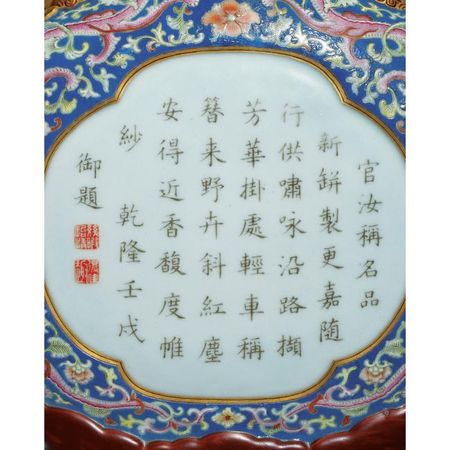 官汝稱名品
新缾製更嘉隨
行供嘯咏沿路擷
芳華掛處輕車稱
簪来野卉斜紅塵
安得近香馥度帷
紗 乾隆壬戌
御題